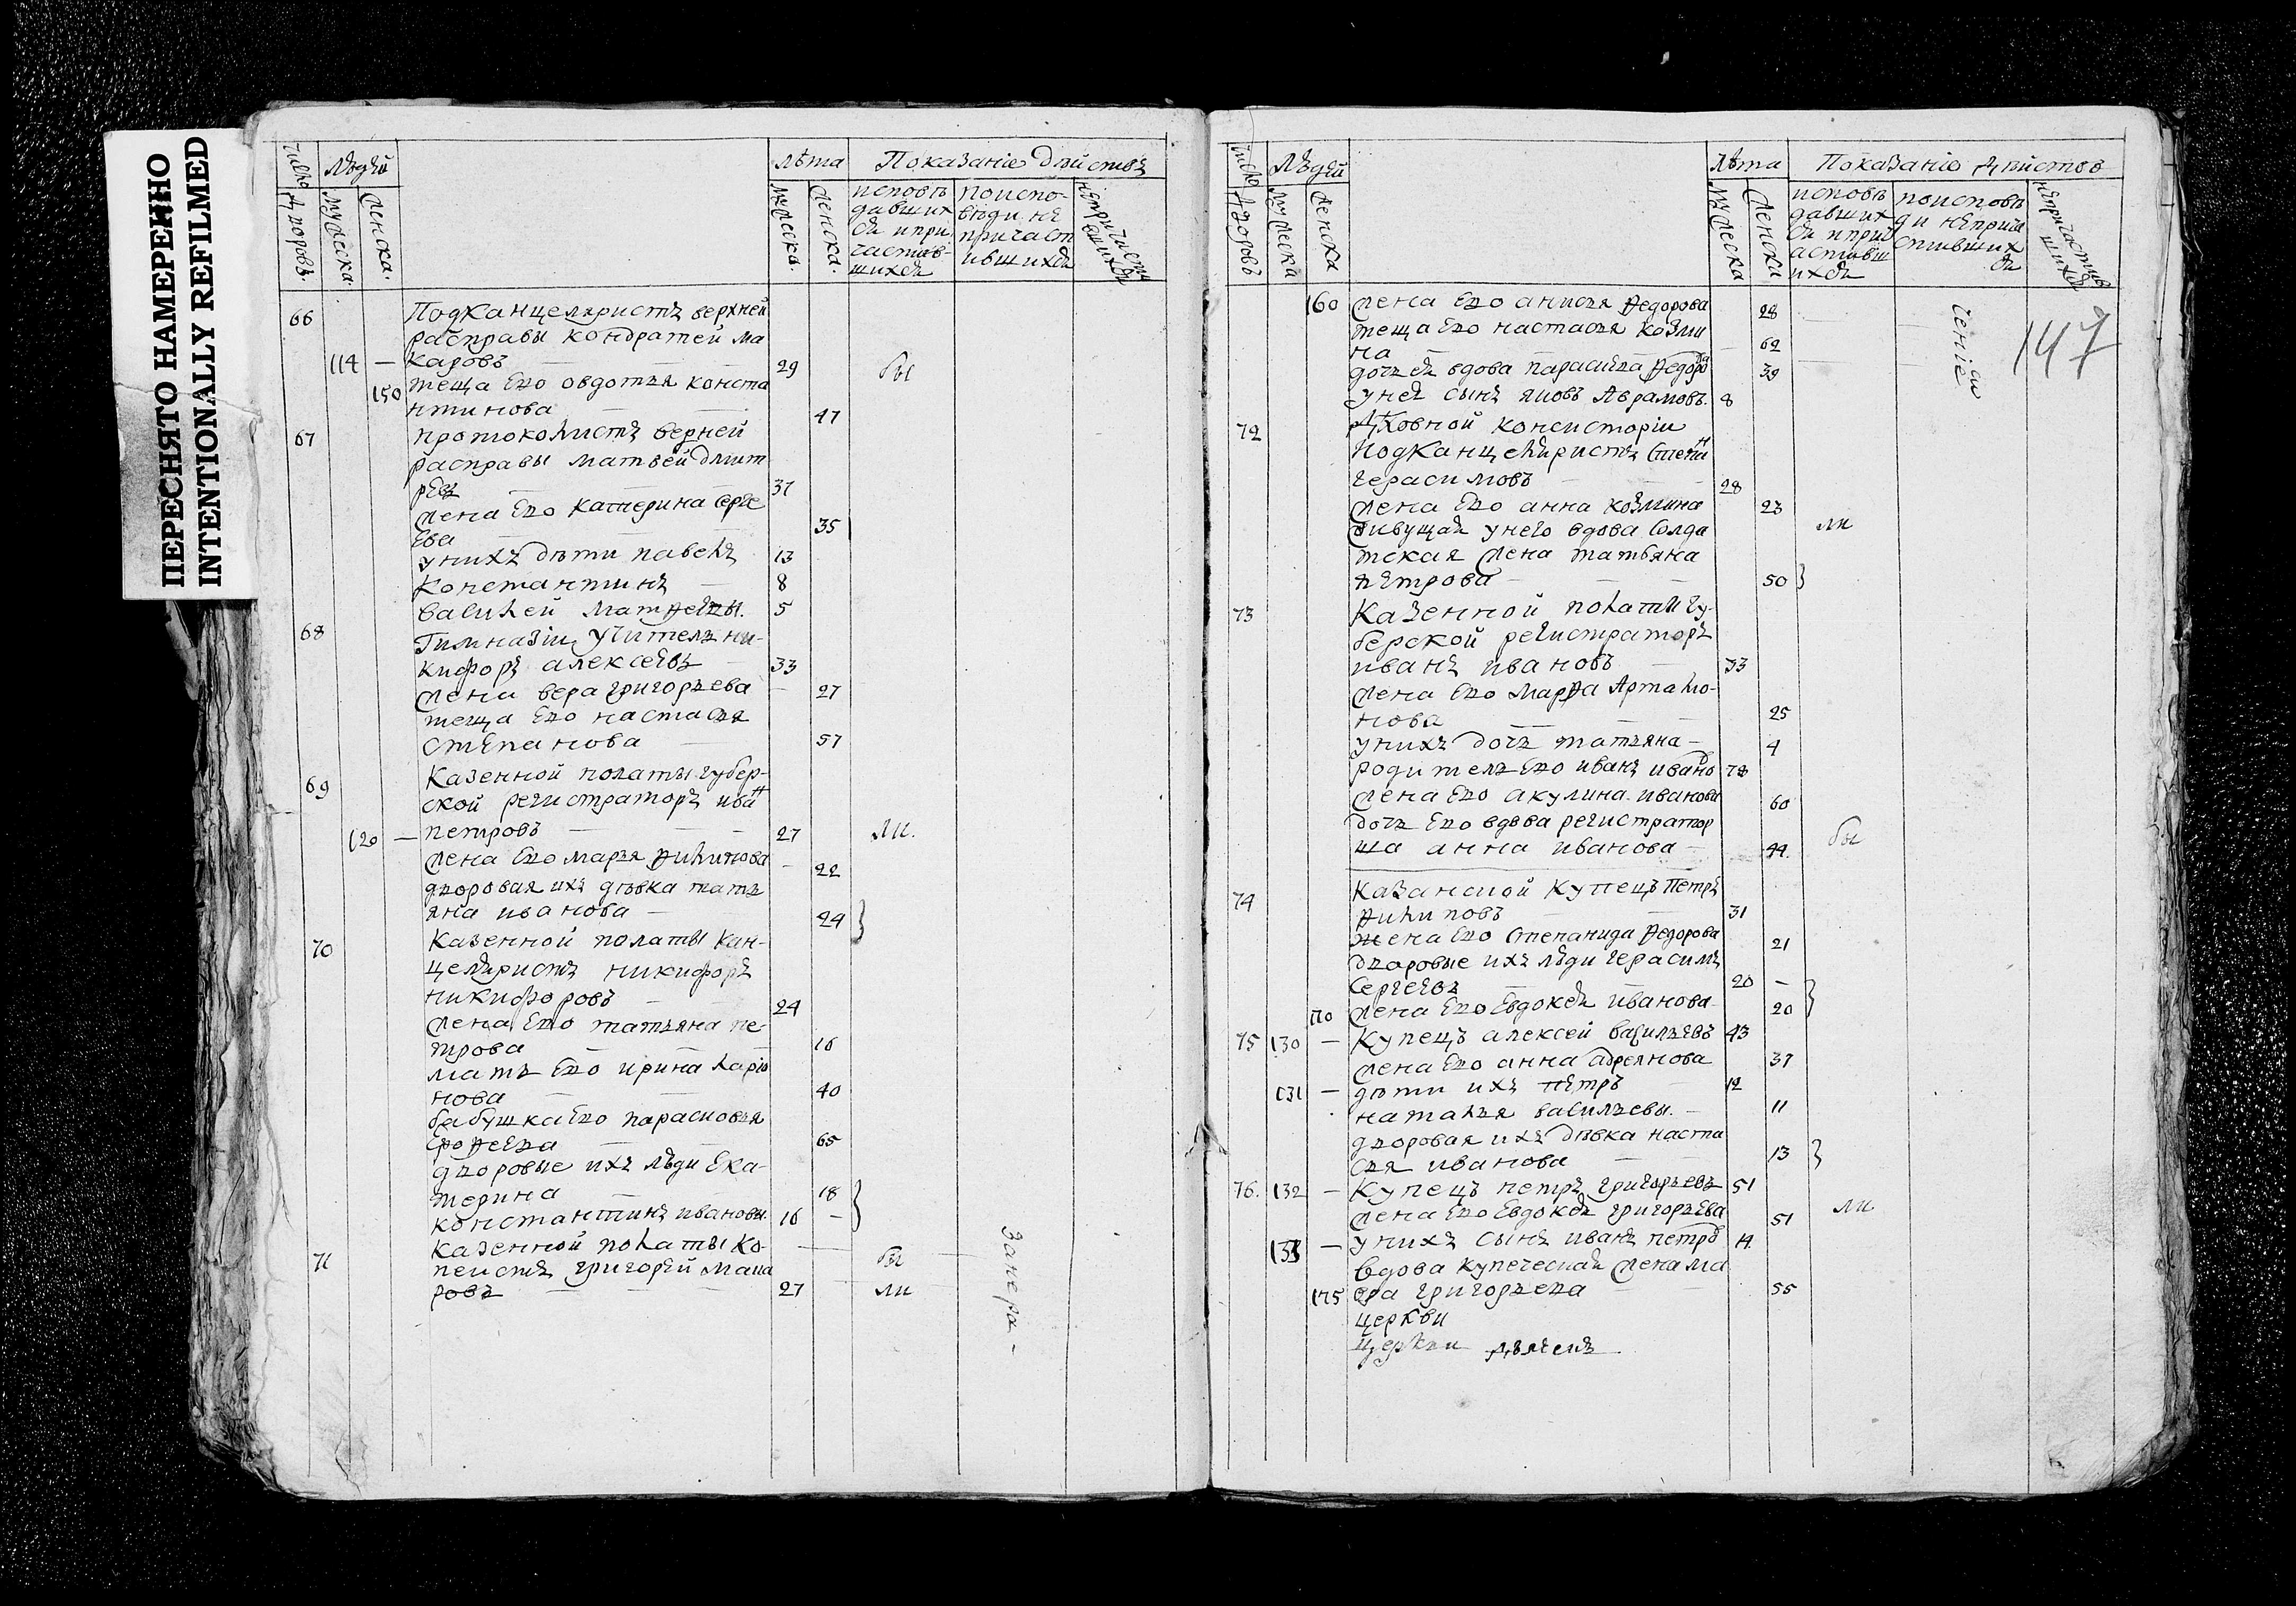 ПЕРЕСНЯТО НАМЕРЕННО
INTENTIONALLY REFILMED
число дворовъ людей мужеска женска лѣта мужска женска Показаніе дѣйствъ
исповѣдавшихся и причастившихся
по исповѣди не причастившихся
66 Подканцеляристъ верхней
расправы кондратей ма
114 — каровъ 29 бы
150 теща Его овдотья конста
нтинова 47
67 протоколистъ верней
расправы матвей дмит
рѣвъ 37
жена Его катерина серге
Ева 35
у нихъ дѣти павелъ 13
константинъ 8
василей матфеевы. 5
68 Гимназіи учитель ни-
кифоръ алексѣевъ 33
жена вера григорьева 27
теща Его настасья
степанова 57
69 Казенной полаты губер-
ской регистраторъ иванъ
120 — петровъ 27 ли.
жена Его марья филипова 22
дворовая ихъ дѣвка тать
яна иванова 24
70 Казенной полаты кан-
целяристъ никифоръ
никифоровъ 24
жена Его татьяна пе-
трова 16
мать Его ирина ларіо
нова 40
бабушка Его парасковья
65
дворовые ихъ люди Ека-
терина 18
константинъ ивановы. 16
71 казенной полаты ко-
пеистъ григорей мака бы
ровъ 27 ли
занера-
число дворовъ людей мужеска женска лѣта мужеска женска Показаніе дѣйствъ
исповѣдавшихся и причастившихся
по исповѣди не причастившихся
147
160 жена Его анисья Федорова 28
теща Его настасья козми
на 62
дочь Ея вдова парасковья Федорова 39
у неѣ сынъ яковъ Аврамовъ. 8
ченіемъ
72 Дховной консисторіи
подканцеляристъ Степанъ
герасимовъ 28
жена Его анна козмина 23
живущая у него вдова солда ли
тская жена татьяна
петрова 50
73 Казенной полаты гу-
берской регистраторъ
иванъ ивановъ 33
жена Его Марфа Артамо-
нова 25
у нихъ дочь татьяна 4
родитель Его иванъ ивановъ 78
жена Его акулина иванова 60
дочь Его вдова регистратор
ша анна иванова 44. бы
74 Казанской купецъ Петръ
Филиповъ 31
жена Его Степанида Федорова 21
дворовые ихъ люди герасимъ
Сергеевъ 20 —
170 жена Его Евдокея иванова 20
75 130 — Купецъ алексей васильевъ 43
жена Его анна адреянова 37
131 — дѣти ихъ петръ 12
наталья васильевы. 11
дворовая ихъ дѣвка наста
сья иванова 13
76. 132 — Купецъ петръ григорьевъ 51
жена Его Евдокея григорьева 51 ли
133 — у нихъ сынъ иванъ петровъ 14
вдова купеческая жена ма
175 григорьева 55
церкви